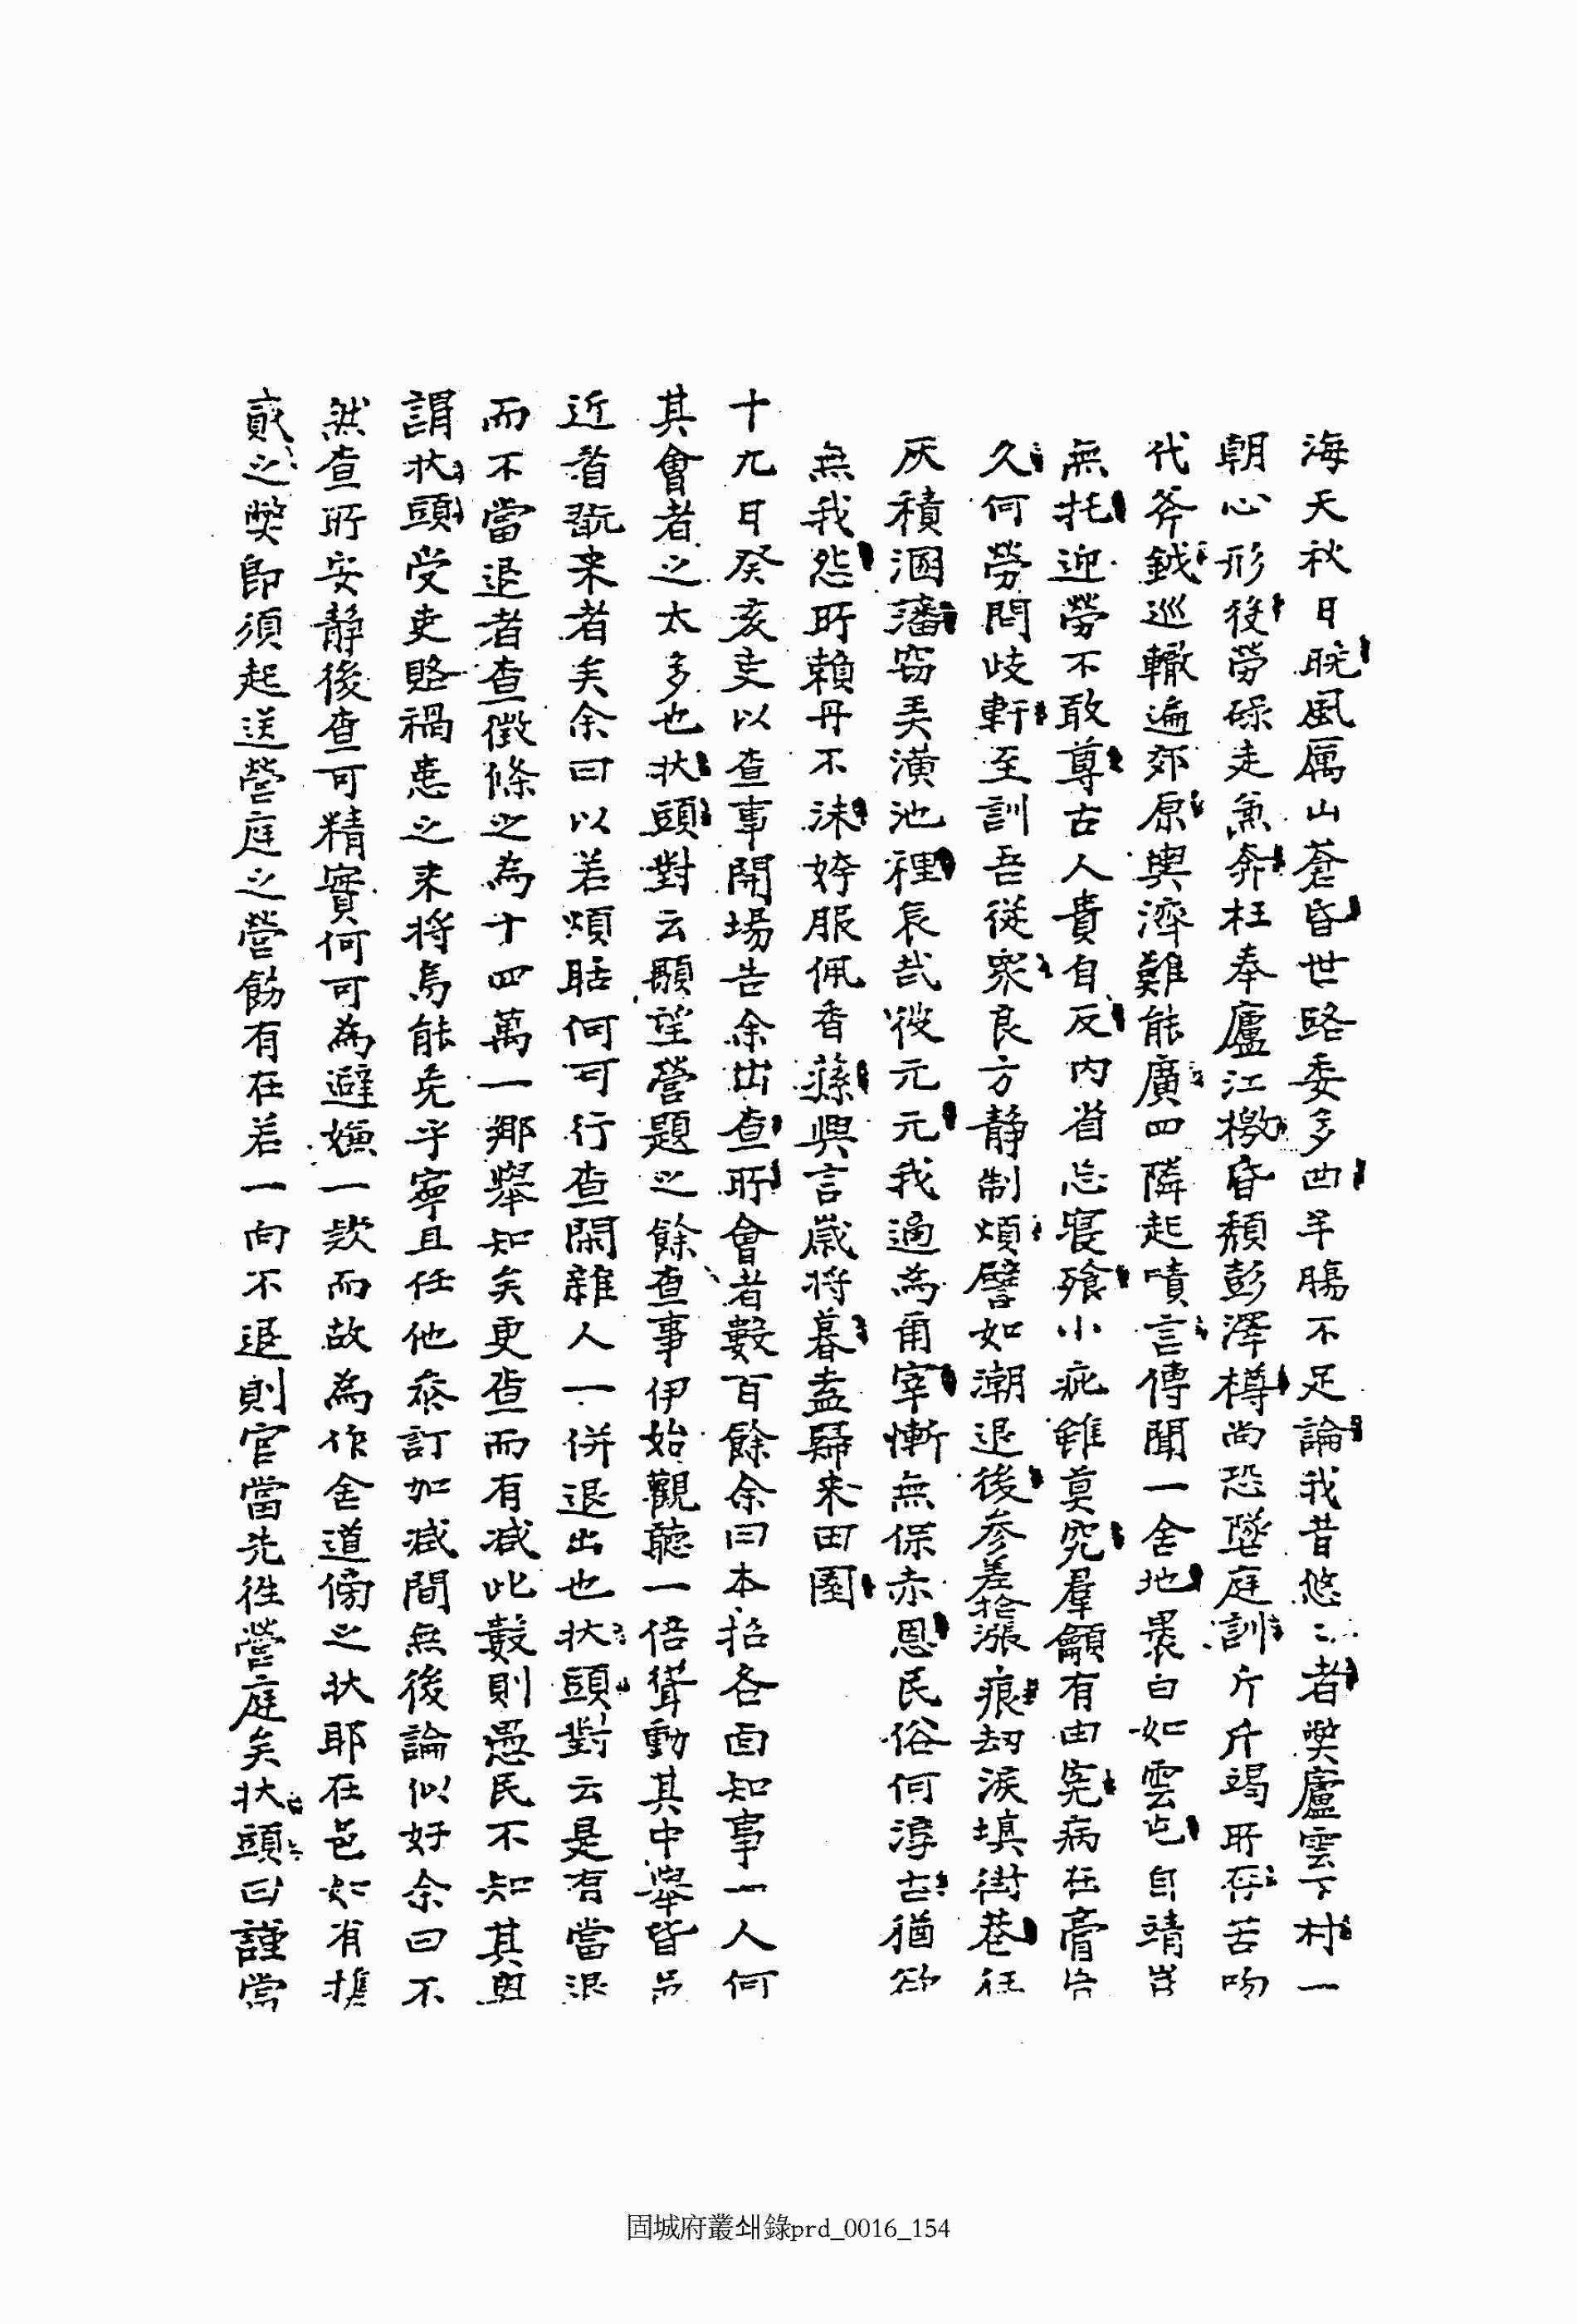 海天秋日晥風厲山蒼昏世路委多凹羊膓不足論我昔悠〻者獘廬雲下村一
朝心形役勞碌走兼奔枉奉廬江檄昏頹彭澤樽尚恐墜庭訓斤斤竭所存苦吻
代斧鉞巡轍遍郊原輿濟難能廣四隣起嘖言傳聞一舍地褁白如雲屯自靖豈
無托迎勞不敢尊古人貴自反內省忘寢飱小疵雖莫究羣龥有由寃病在膏肓
久何勞問岐軒至訓吾從眾良方靜制煩譬如潮退後參差拾漲痕刼淚塡街巷狂
灰積溷藩窃弄潢池裡哀哉彼元元我適為甭宰慚無保赤恩民俗何淳古猶欲
無我怨所賴丹不沬姱服佩香蓀興言歲將暮盍歸来田園
十九日癸亥吏以查事開場告余出查所會者數百餘余曰本招各面知事一人何
其會者之太多也狀頭對云顒望營題之餘查事伊始觀聽一倍聳動其中擧皆邑
近者翫来者矣余曰以若煩聒何可行查閑雜人一併退出也狀頭對云是有當退
而不當退者查徵條之為十四萬一鄕擧知矣更查而有减此數則愚民不知其輿
謂狀頭受吏賂禍患之来將焉能免乎寧且任他叅訂加减間無後論似好余曰不
然查所安靜後查可精實何可為避嫌一欵而故為作舍道傍之狀耶在邑如有携
貳之獘即須起送營庭之營飭有在若一向不退則官當先徃營庭矣狀頭曰謹當
固城府叢쇄錄prd_0016_154